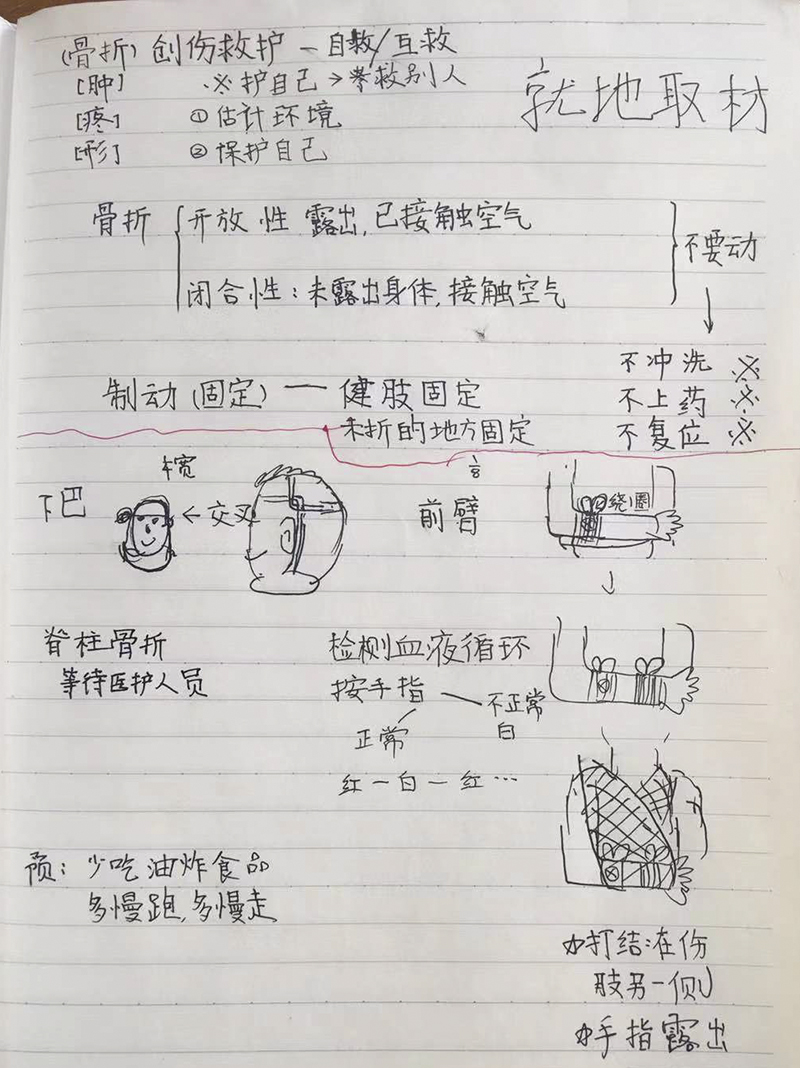 (骨折) 创伤救护 — 自救/互救
[肿] ※ 护自己 → 救别人
[疼] ① 估计环境
[形] ② 保护自己
就地取材
骨折
开放性 露出,已接触空气
闭合性:未露出身体,接触空气
不要动
↓
不冲洗 ※
不上药 ※
不复位 ※
制动 (固定) — 健肢固定
未折的地方固定
下巴
宽
← 交叉
前臂
绕1圈
↓
脊柱骨折
等待医护人员
检测血液循环
按手指 — 不正常
白
正常
红 — 白 — 红 …
预:少吃油炸食品
多慢跑,多慢走
打结:在伤
肢另一侧
手指露出